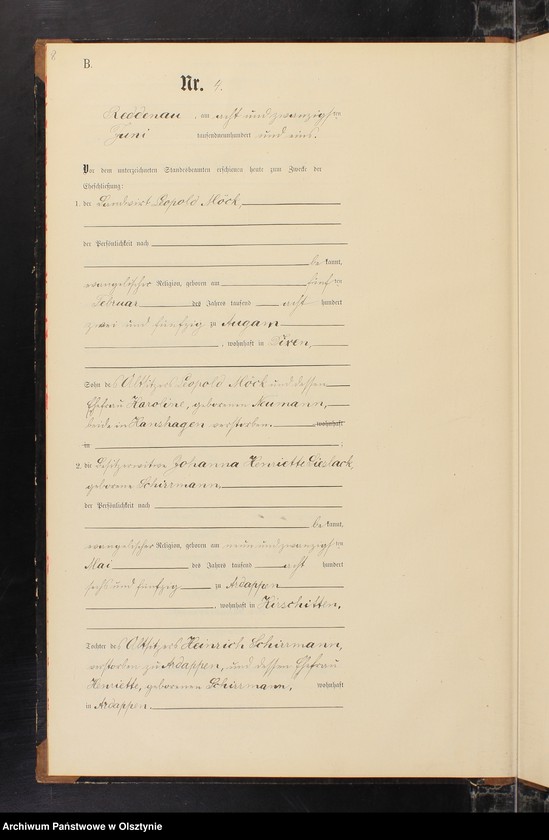 8.
B.
Nr. 4.
Reddenau, am acht und zwanzigsten
Juni tausendneunhundert und eins.
Vor dem unterzeichneten Standesbeamten erschienen heute zum Zwecke der
Eheschließung:
1. der Landwirt Leopold Möck,
der Persönlichkeit nach
be kannt,
evangelischer Religion, geboren am fünften
Februar des Jahres tausend acht hundert
zwei und fünfzig zu Augam
, wohnhaft in Dixen,
Sohn des Altsitzers Leopold Möck und dessen
Ehefrau Karoline, geborenen Neumann,
beide in Hanshagen verstorben. wohnhaft
in .
2. die Besitzerwitwe Johanna Henriette Gieslack,
geborene Schirrmann,
der Persönlichkeit nach
be kannt,
evangelischer Religion, geboren am neun und zwanzigsten
Mai des Jahres tausend acht hundert
sechs und fünfzig zu Ardappen
, wohnhaft in Kirschitten,
Tochter des Altsitzers Heinrich Schirrmann,
verstorben zu Ardappen, und dessen Ehefrau
Henriette, geborenen Schirrmann, wohnhaft
in Ardappen.
Archiwum Państwowe w Olsztynie